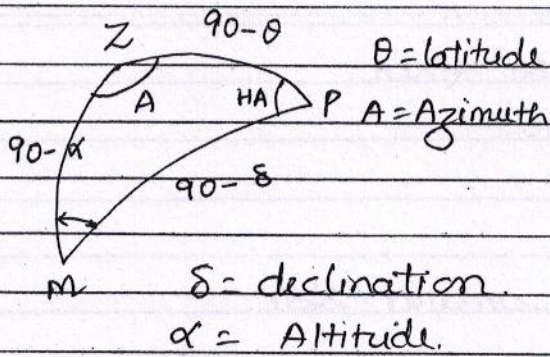 90-θ
Z
θ = latitude
A
HA
P
A = Azimuth
90-α
90-δ
M
δ = declination.
α = Altitude.